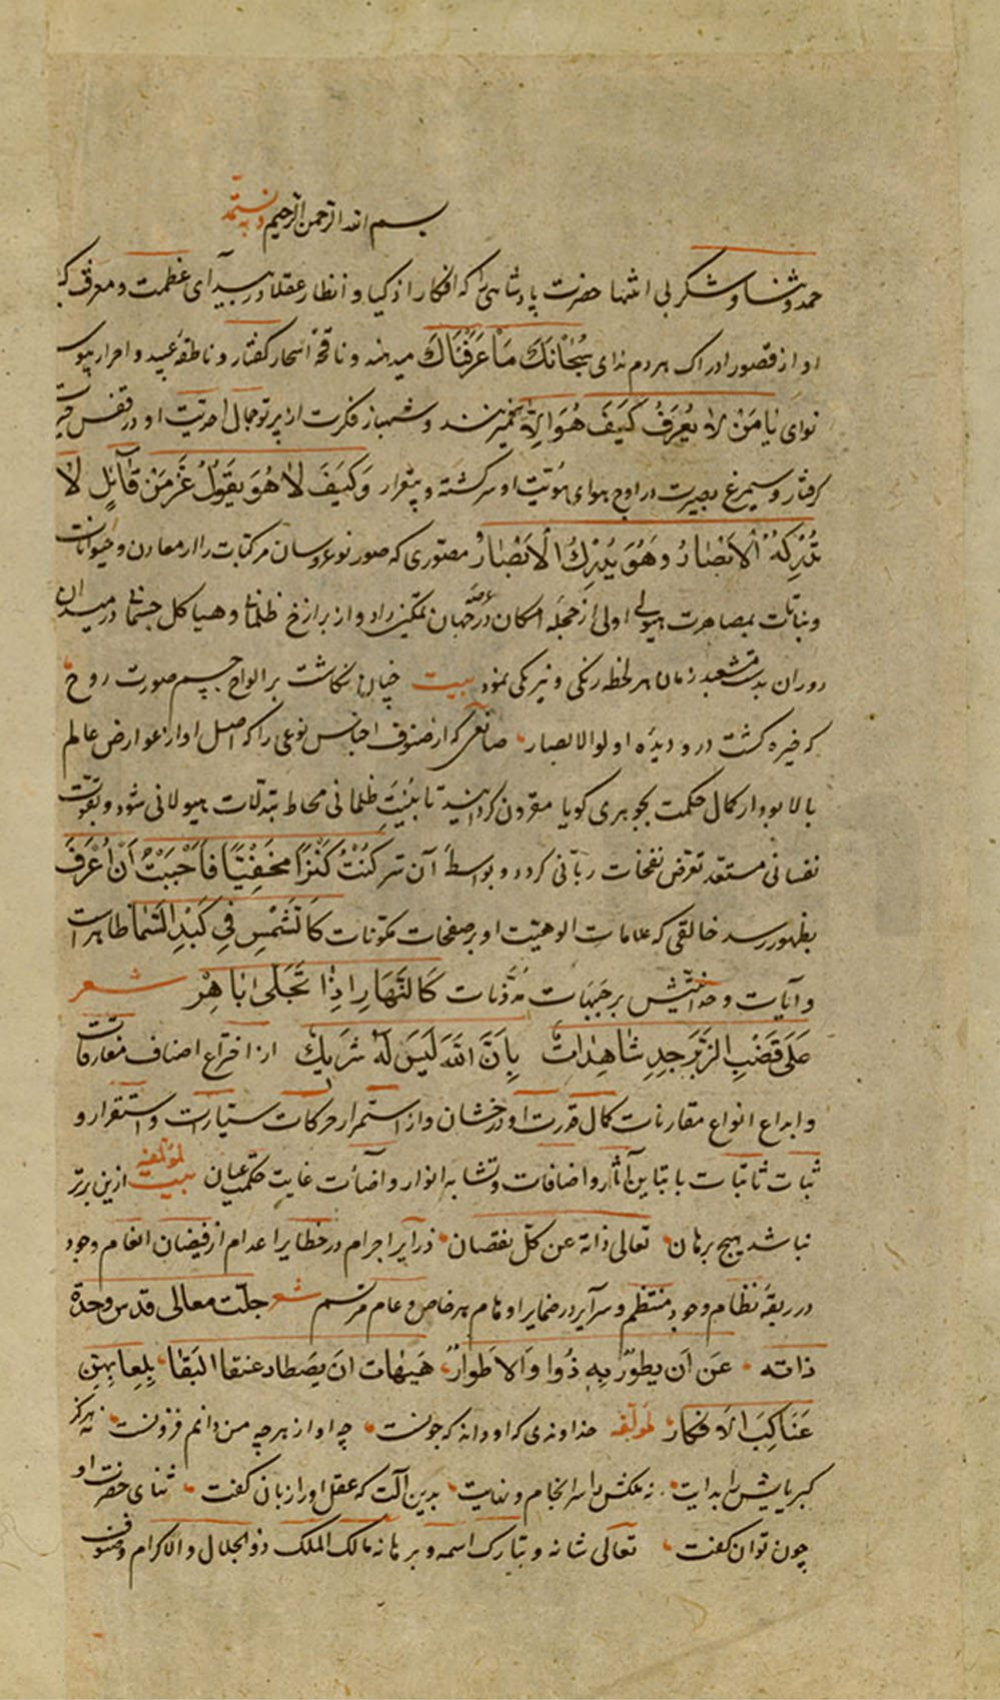 بسم الله الرحمن الرحیم وبه نستمد
حمد و ثنا و شکر بی انتها حضرت پادشاهی را که افکار اذکیا و انظار عقلا در بیدای عظمت و معرفت که
او از قصور ادراک هر دم ندای سُبْحَانَكَ مَا عَرَفْنَاكَ میدمند و نافخهٔ اسحار گفتار و ناطقهٔ عبید و احرار پیوسته
نوای یَا مَنْ لَا یُعْرَفُ کَیْفَ هُوَ اِلَّا هُوَ میزنند و شهباز فکرت از پرتو جمال احدیّت او در قفس حیرت
گرفتار و سیمرغ بصیرت در اوج هوای هویّت او سرگشته و بیقرار وَکَیْفَ لَا هُوَ یَقُولُ عَزَّ مِنْ قَائِلٍ لَا
تُدْرِکُهُ الْاَبْصَارُ وَهُوَ یُدْرِكُ الْاَبْصَارَ مصوّری که صور نوعروسان مرکبات را از معادن و حیوانات
و نباتات بمصاهرت هیولی اولی از حجلهٔ امکان در عرصهٔ جهان تمکین داد و از برازخ ظلمانی و هیاکل جسمانی در میدان
دوران بدست مشعبد زمان هر لحظه رنگی و نیرنگی نمود بیت چنان نگاشت بر الواح جسم صورت روح
که خیره گشت درو دیده اولوالابصار صانعی که از صنوف اجناس نوعی را که اصل او از عوارض عالم
بالا بود از کمال حکمت بجوهری گویا مقرون گردانید تا بنیت ظلمانی محاط تبدلات هیولانی شود و بقوّت
نفسانی مستعد تعرّض نفحات ربّانی گردد و بواسطهٔ آن سرّ کُنْتُ کَنْزًا مَخْفِیًّا فَاَحْبَبْتُ اَنْ اُعْرَفَ
بظهور رسد خالقی که علامات الوهیّت او بر صفحات مکونات کَالشَّمْسِ فِی کَبِدِ السَّمَا ظاهر است
و آیات وحدانیتش بر جبهات کَالنَّهَارِ اِذَا تَجَلّٰی بَاهِرْ شعر
عَلٰی قَضَبِ الزَّبَرْجَدِ شَاهِدَاتٌ بِاَنَّ اللّٰهَ لَیْسَ لَهُ شَرِیكُ از اختراع اصناف مفارقات
و ابداع انواع مقارنات کمال قدرت او درخشان و از استمرار حرکات سیّارات و استقرار و
ثبات ثابتات با تباین آثار و اضافات و تشابه انوار و اضآئت غایت حکمت عیان لمؤلفه بیت ازین برتر
نباشد هیچ برهان تعالی ذاته عن کلّ نقصان ذرآیر اجرام در خطایر اعدام از فیضان انعام وجود
در ربقهٔ نظام وجود منتظم و سرآیر در ضمایر او نام هر خاص و عام مرتسم شعر جلّت معالی قدس وحدة
ذاته عن اَن یطوّر بِه ذُوا وَالاطوارُ هَیهَات اَن یَصطاد عنقا البَقا بِلعابِهِنّ
عَنَاکِبَ الاَفکارِ لمؤلفه خداوندی که او داند که چونست چه او از هر چه من دانم فزونست نه هرگز
کبریایش را بدایت نه ملکش را سرانجام و نهایت بدین آلت که عقل او را زبان گفت ثنای حضرت او
چون توان گفت تعالی شانه و تبارک اسمه و برهانه مالک الملک ذوالجلال والاکرام و صنوف